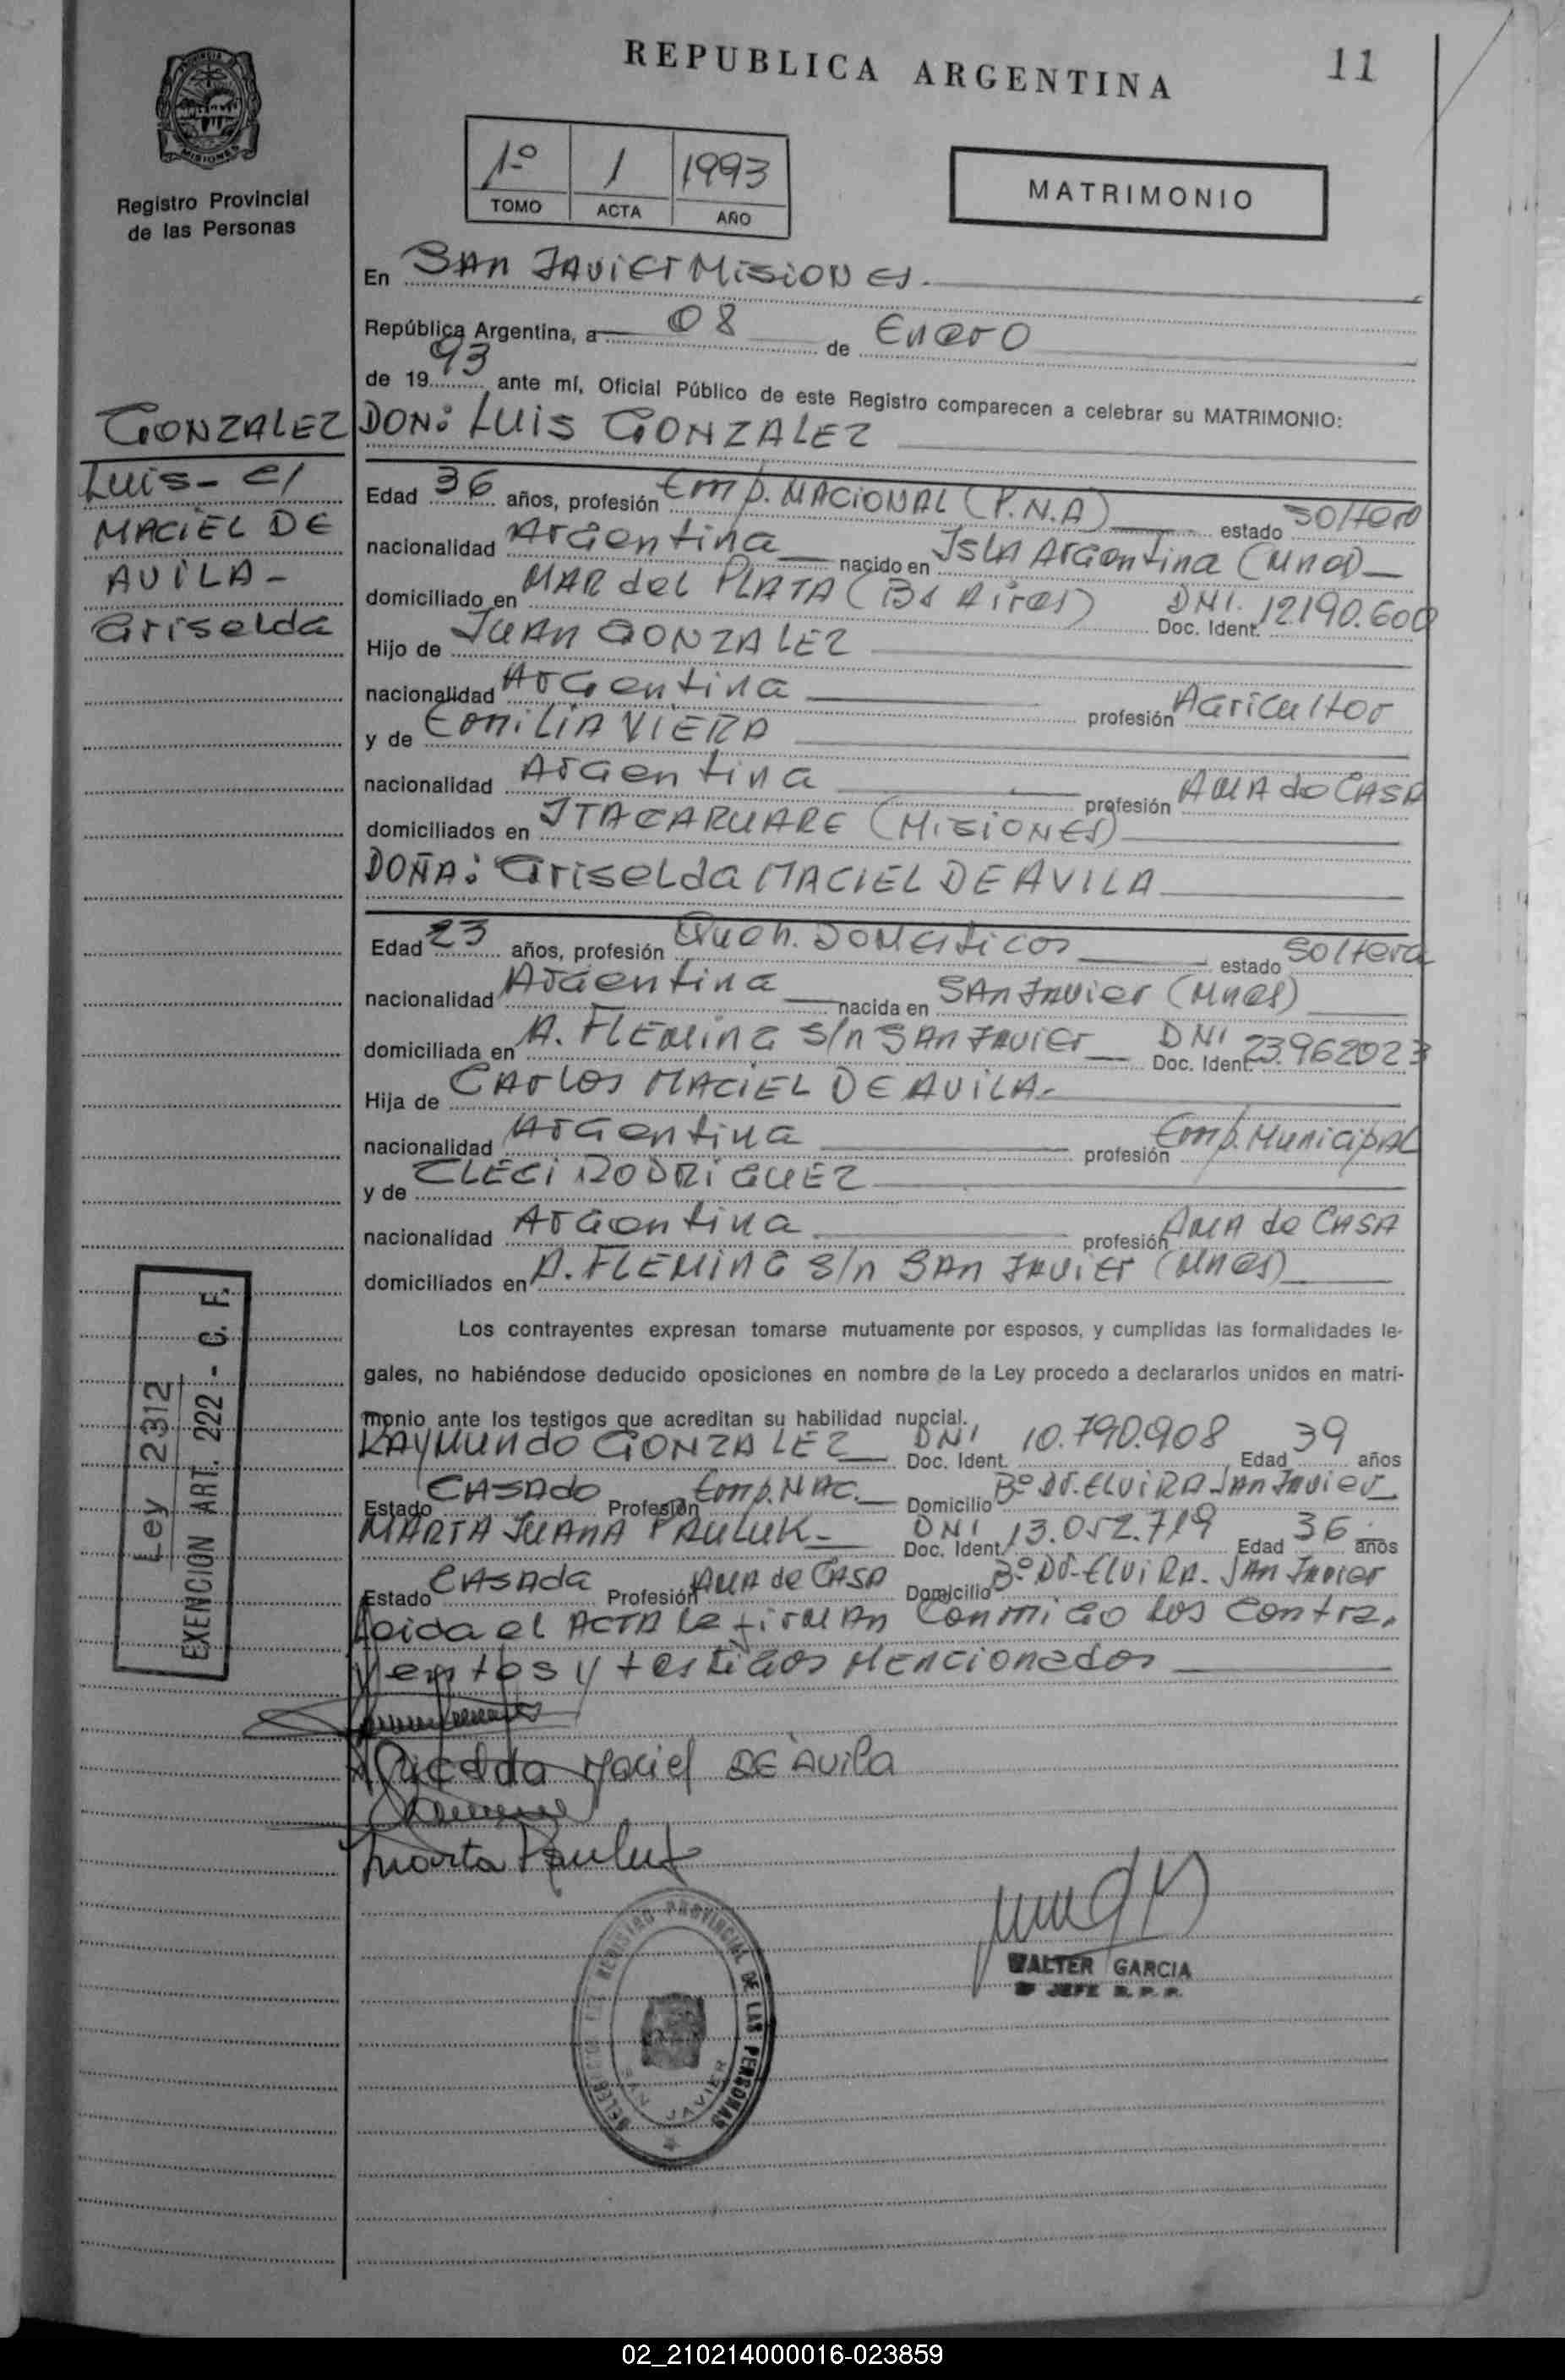 REPUBLICA ARGENTINA
11
MISIONES
Registro Provincial
de las Personas
1º 1 1993
TOMO ACTA AÑO
MATRIMONIO
En SAn JAvier MisioNes.
República Argentina, a 08 de Enero
de 1993 ante mí, Oficial Público de este Registro comparecen a celebrar su MATRIMONIO:
GONZALEZ
Luis - c/
MACIEL DE
AVILA -
Griselda
DON: Luis GONZALEZ
Edad 36 años, profesión Emp. NACIONAL (P.N.A) estado soltero
nacionalidad Argentina nacido en Isla Argentina (Mnes)
domiciliado en MAR del PLATA (Bs Aires) Doc. Ident. DNI. 12.190.600
Hijo de JUAN GONZALEZ
nacionalidad Argentina profesión Agricultor
y de EmiliA VIERA
nacionalidad Argentina profesión AMA de CASA
domiciliados en ITACARUARE (MISIONES)
DOÑA: Griselda MACIEL DE AVILA
Edad 23 años, profesión Queh. Domesticos estado soltera
nacionalidad Argentina nacida en SAn JAvier (Mnes)
domiciliada en A. FLEMING s/n SAn JAvier Doc. Ident. DNI 23.962023
Hija de CArlos MACIEL DE AVILA.
nacionalidad Argentina profesión Emp. MunicipAL
y de CLECI RODRIGUEZ
nacionalidad Argentina profesión AMA de CASA
domiciliados en A. FLEMING s/n SAn JAvier (Mnes)
Los contrayentes expresan tomarse mutuamente por esposos, y cumplidas las formalidades le-
gales, no habiéndose deducido oposiciones en nombre de la Ley procedo a declararlos unidos en matri-
monio ante los testigos que acreditan su habilidad nupcial.
RAYMundo GONZALEZ Doc. Ident. DNI 10.790.908 Edad 39 años
Estado CASAdo Profesión Emp. NAC. Domicilio Bº Dr. ELVIRA SAn JAvier
MARTA JUANA PAULUK - Doc. Ident. DNI 13.052.719 Edad 36 años
Estado CASAda Profesión AMA de CASA Domicilio Bº Dr. ELVIRA. SAn JAvier
Leida el ACTA la firmAn Conmigo los Contra.
yentes y testigos Mencionados
Ley 2312
EXENCION ART. 222 - C. F.
Griselda Maciel DE AVila
Marta Pauluk
DELEGACION DEL REGISTRO PROVINCIAL DE LAS PERSONAS
SAN JAVIER
WALTER GARCIA
JEFE R. P. P.
02_210214000016-023859